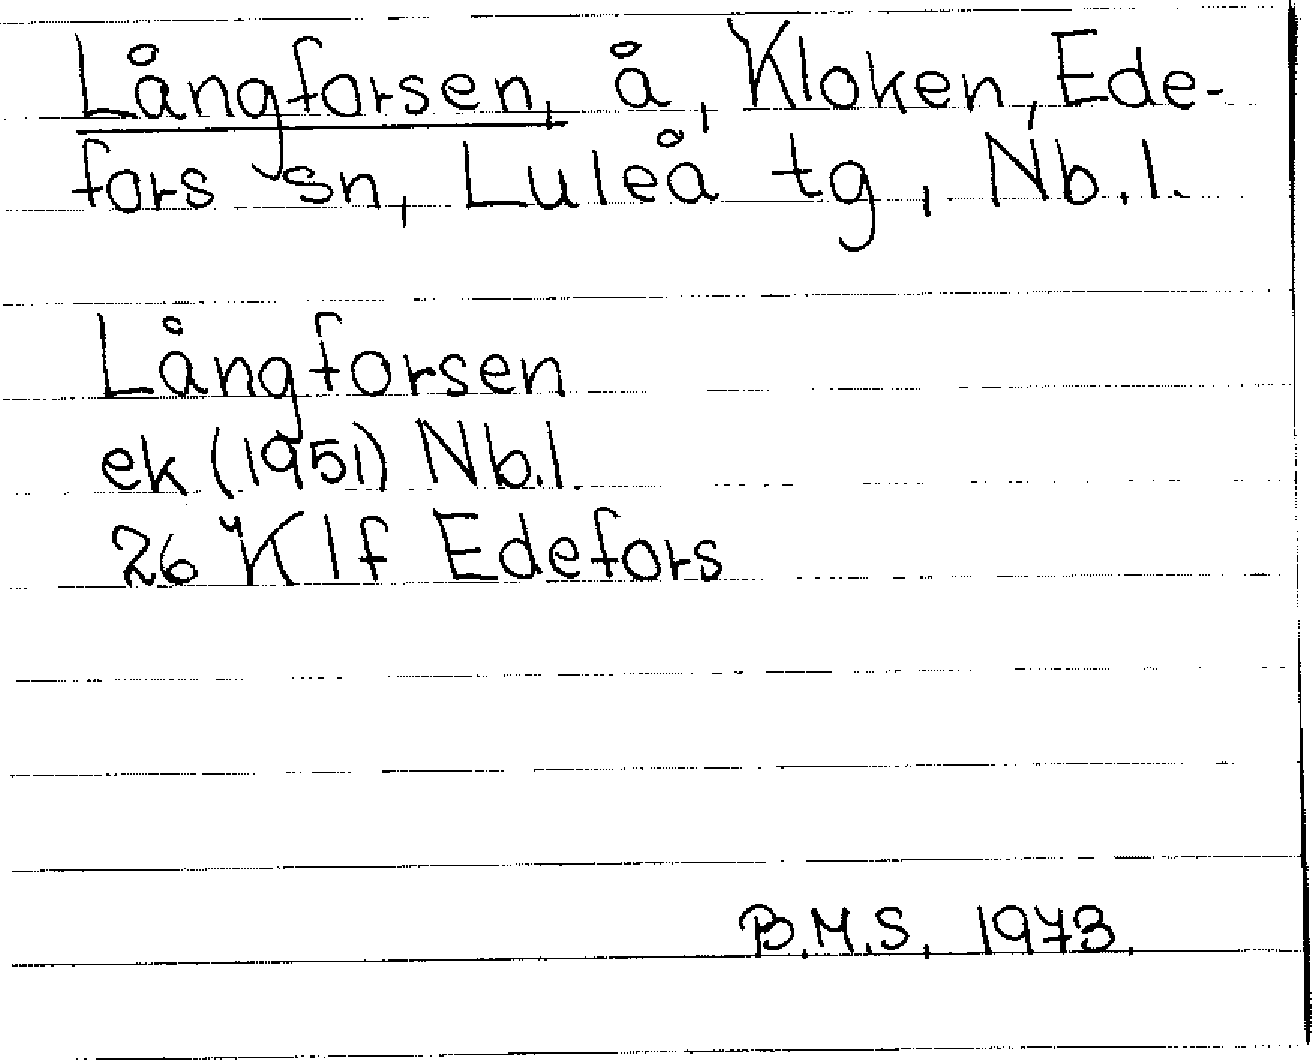 Långforsen, å, Kloken, Ede-
fors sn, Luleå tg, Nb.l.
Långforsen
ek (1951) Nb.l.
26 K l f Edefors
B.M.S. 1973.